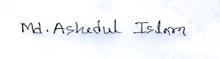 Md. Ashedul Islam